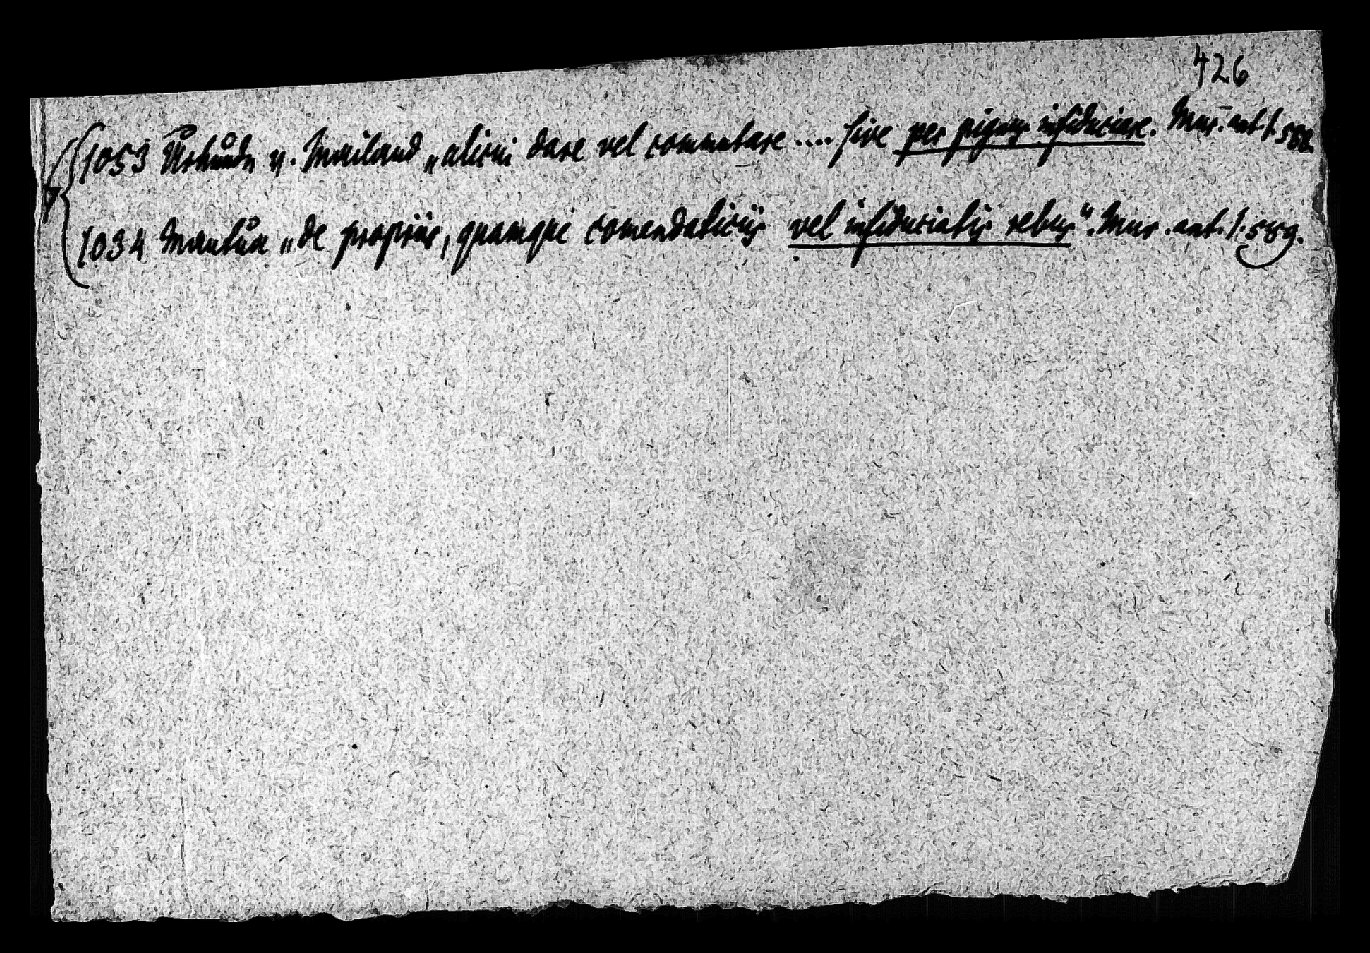 426
1053 Urkunde v. Mailand „alicui dare vel commutare .... sive per pignus infiduciare. Mur. ant. I. 588.
1034 Mantua „de propriis, quamque comendaticiis vel infiduciatis rebus“. Mur. ant. I. 589.